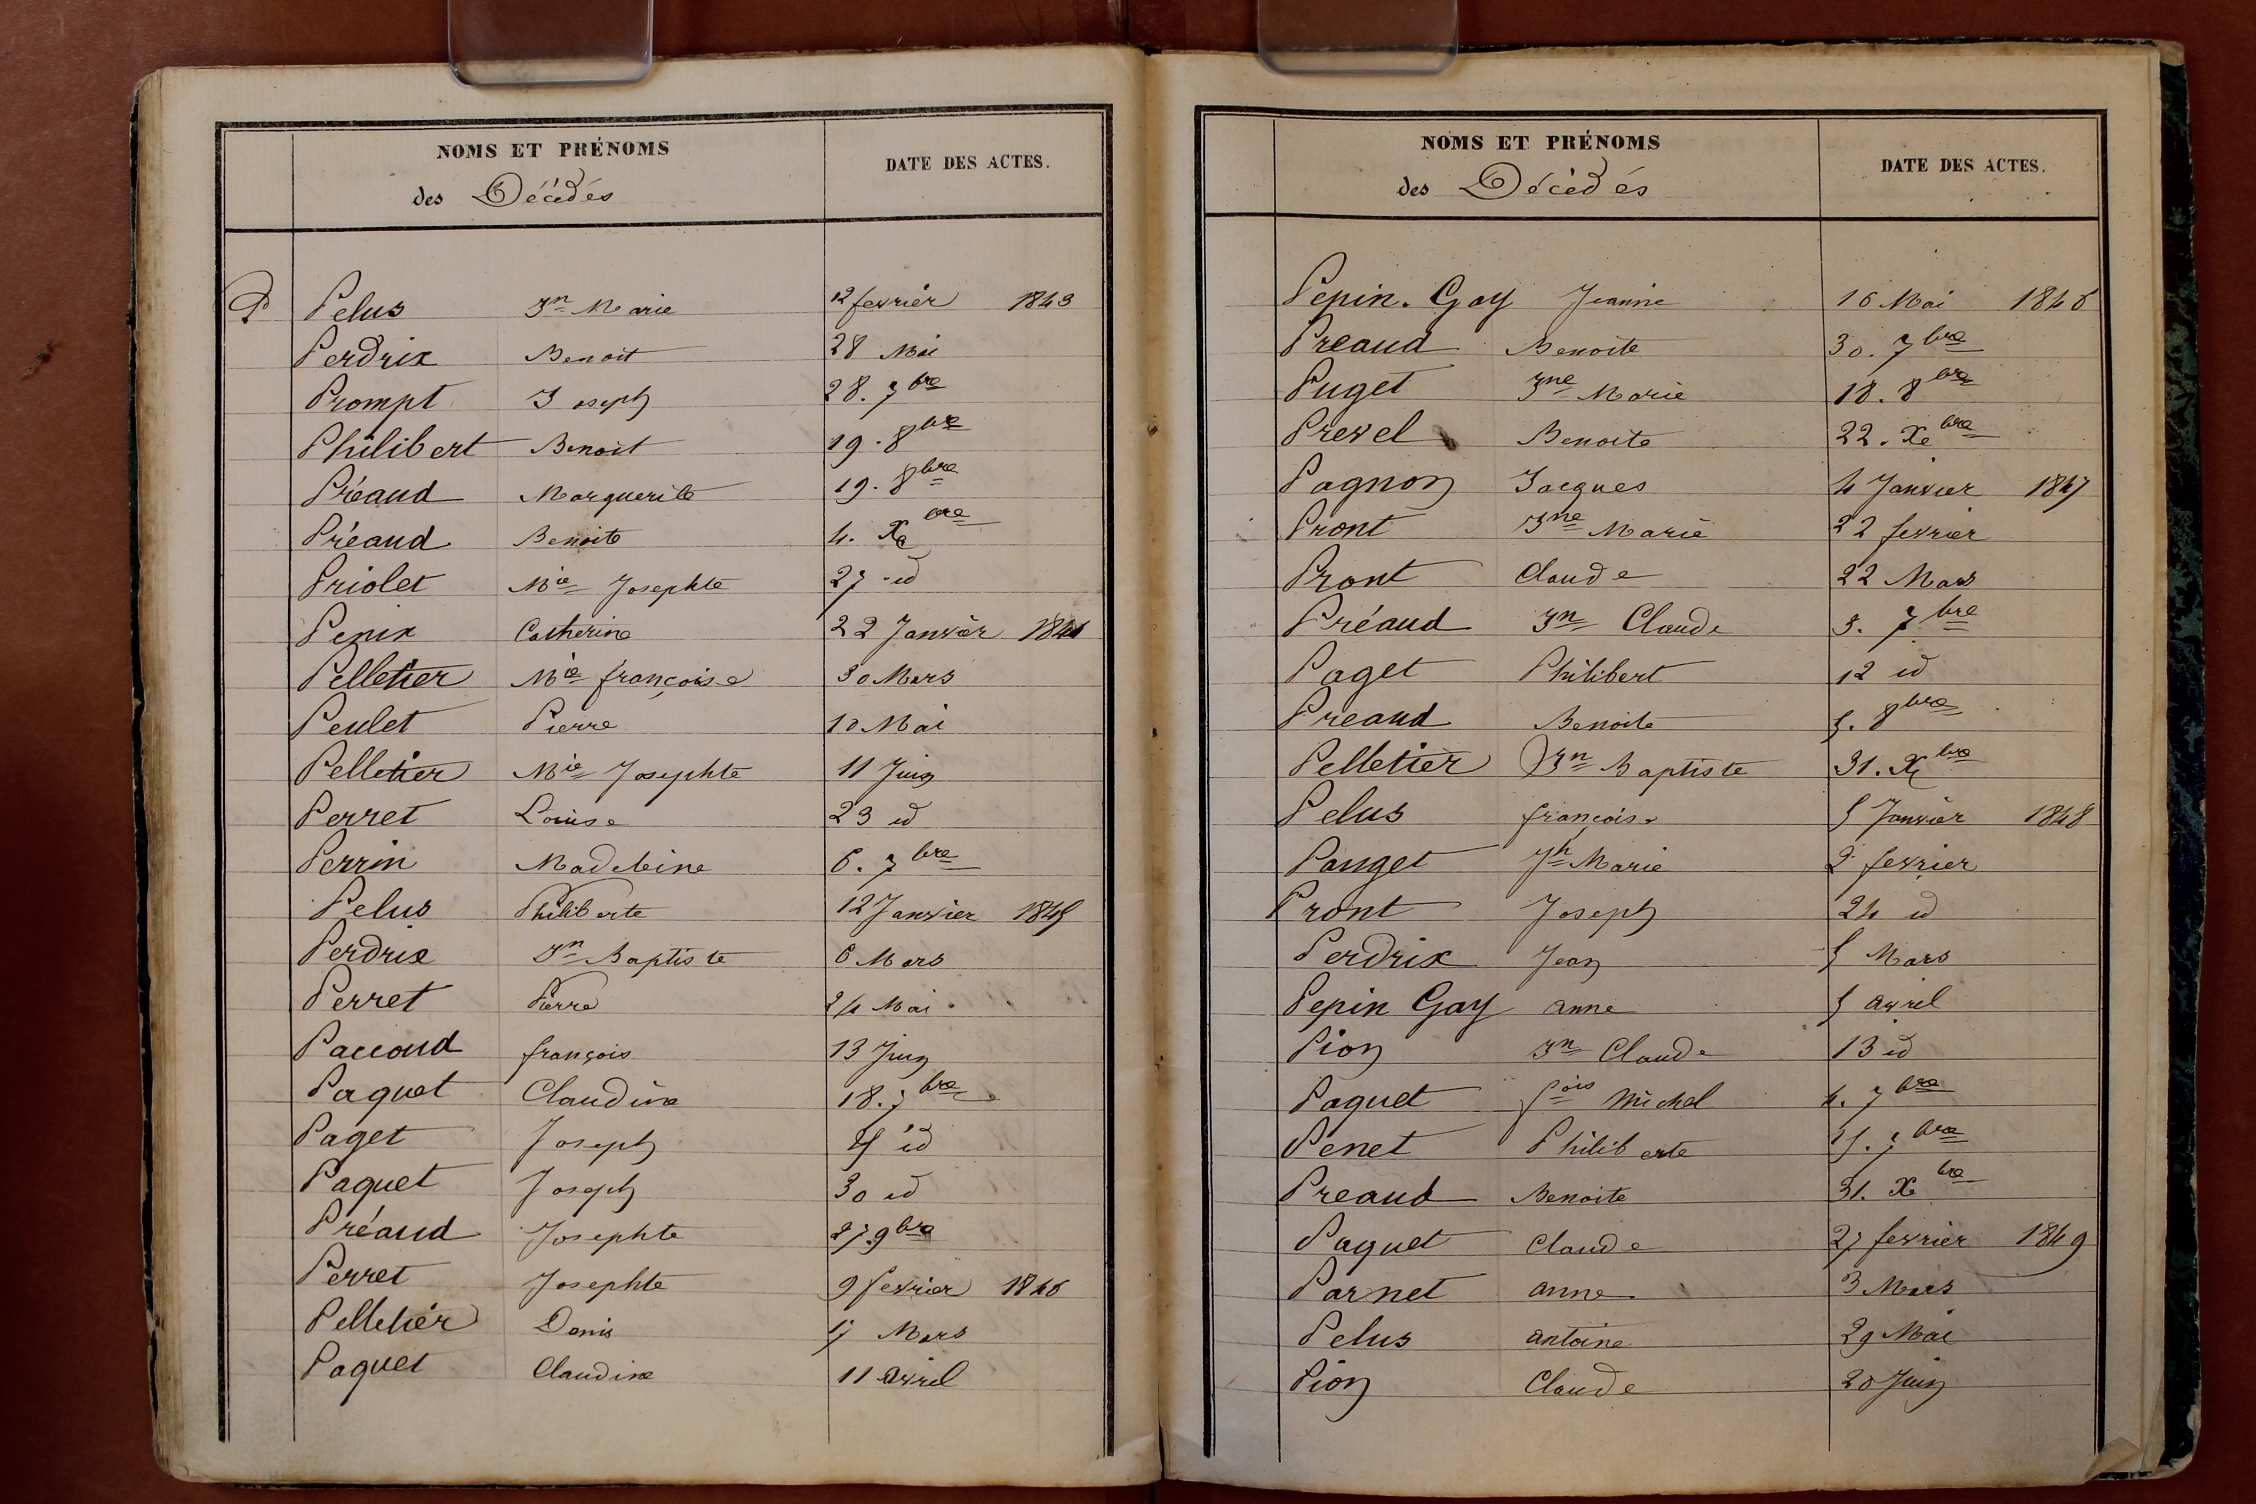 NOMS ET PRÉNOMS
des Décédés
DATE DES ACTES.
P Pelus Jn Marie 12 fevrier 1843
Perdrix Benoit 28 Mai
Prompt Joseph 28. 7bre
Philibert Benoit 19. 8bre
Préaud Marguerite 19. 8bre
Préaud Benoite 4. Xbre
Priolet Mie Josephte 27 id
Penix Catherine 22 Janvier 1844
Pelletier Mie françoise 30 Mars
Peulet Pierre 10 Mai
Pelletier Mie Josephte 11 Juin
Perret Louise 23 id
Perrin Madeleine 6. 7bre
Pelus Philiberte 12 Janvier 1845
Perdrix Jn Baptiste 6 Mars
Perret Pierre 24 Mai
Paccoud françois 13 Juin
Paquet Claudine 18. 7bre
Paget Joseph id
Paquet Joseph 30 id
Préaud Josephte 27. 9bre
Perret Josephte 9 fevrier 1846
Pelletier Denis 17 Mars
Paquet Claudine 11 avril
NOMS ET PRÉNOMS
des Décédés
DATE DES ACTES.
Pepin. Gay Jeanne 16 Mai 1846
Preaud Benoite 30. 7bre
Puget Jne Marie 18. 8bre
Prevel Benoite 22. Xbre
Pagnon Jacques 4 Janvier 1847
Pront Jne Marie 22 fevrier
Pront Claude 22 Mars
Préaud Jn Claude 3. 7bre
Paget Philibert 12 id
Preaud Benoite 5. 8bre
Pelletier Jn Baptiste 31. Xbre
Pelus françoise 5 Janvier 1848
Pauget Jh Marie 2 fevrier
Pront Joseph 24 id
Perdrix Jean 5 Mars
Pepin Gay anne 5 avril
Pion Jn Claude 13 id
Paquet fois Michel 4. 7bre
Penet Philiberte 7bre
Preaud Benoite 31. Xbre
Paquet Claude 27 fevrier 1849
Parnet anne 3 Mars
Pelus antoine 29 Mai
Pion Claude 20 Juin